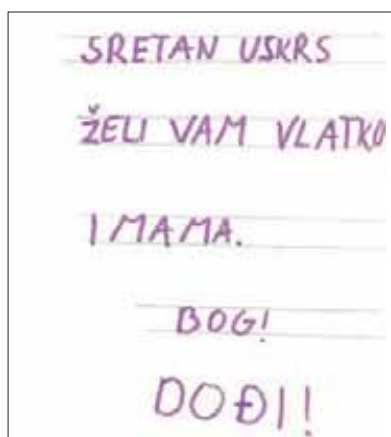 SRETAN USKRS
ŽELI VAM VLATKO
I MAMA.
BOG!
DOĐI!